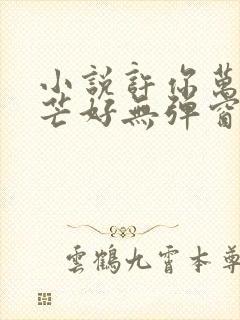 小說許你萬
芒好無彈窗
雲鶴九霄本尊